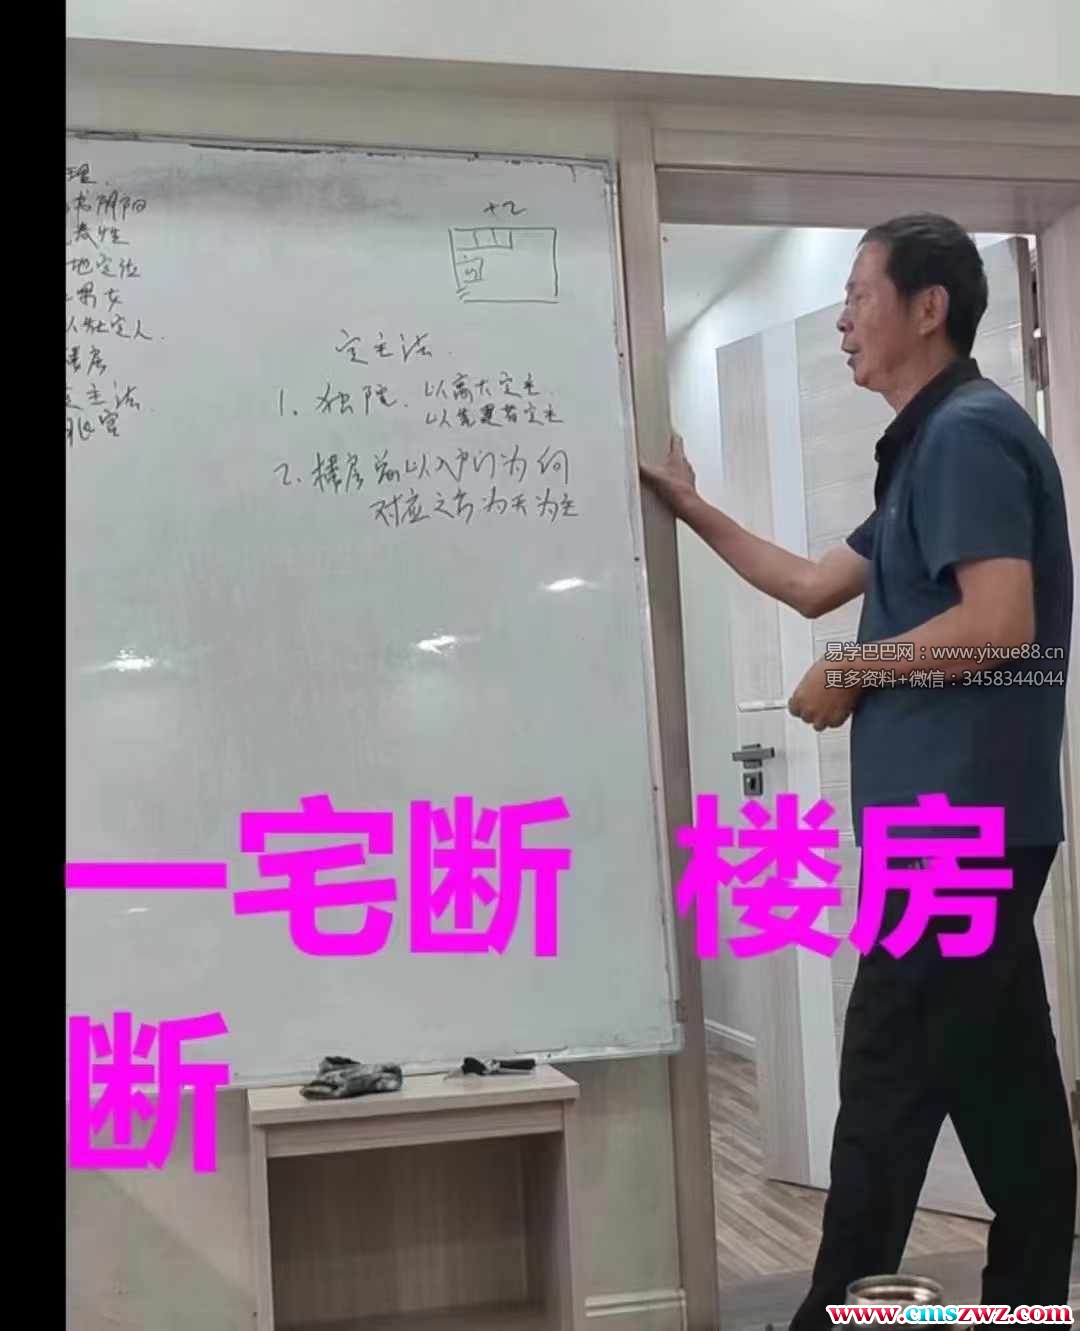 理
阴阳
性
地定位
男女
以灶定人
楼房
定主法
定主法
1. 独院. 以高大定主
以先建者定主
2. 楼房 以入户门为向
对应之方为天为主
易学巴巴网：www.yixue88.cn
更多资料+微信：3458344044
一宅断 楼房
断
www.cmszwz.com